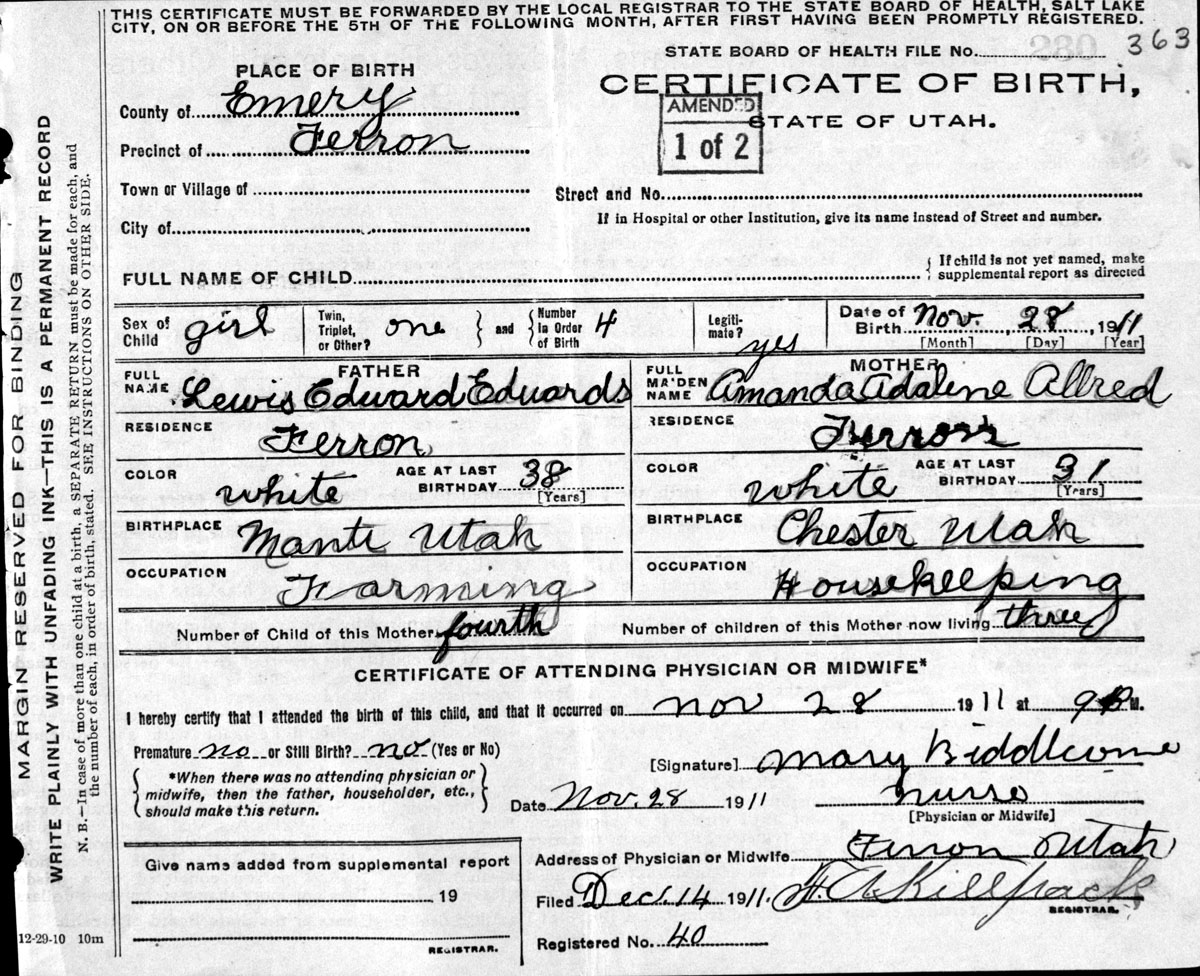 THIS CERTIFICATE MUST BE FORWARDED BY THE LOCAL REGISTRAR TO THE STATE BOARD OF HEALTH, SALT LAKE
CITY, ON OR BEFORE THE 5TH OF THE FOLLOWING MONTH, AFTER FIRST HAVING BEEN PROMPTLY REGISTERED.
STATE BOARD OF HEALTH FILE No. 363
PLACE OF BIRTH
CERTIFICATE OF BIRTH,
STATE OF UTAH.
AMENDED
1 of 2
County of Emery
Precinct of Ferron
Town or Village of
Street and No.
City of
If in Hospital or other Institution, give its name instead of Street and number.
FULL NAME OF CHILD
{ If child is not yet named, make
supplemental report as directed
Sex of Child girl
Twin, Triplet, or Other? one } and { Number in Order of Birth 4
Legiti-mate? yes
Date of Birth Nov. 28, 1911
[Month] [Day] [Year]
FATHER
FULL NAME Lewis Edward Edwards
MOTHER
FULL MAIDEN NAME Amanda Adalene Allred
RESIDENCE Ferron
RESIDENCE Ferron
COLOR white AGE AT LAST BIRTHDAY 38 [Years]
COLOR white AGE AT LAST BIRTHDAY 31 [Years]
BIRTHPLACE Manti Utah
BIRTHPLACE Chester Utah
OCCUPATION Farming
OCCUPATION Housekeeping
Number of Child of this Mother fourth
Number of children of this Mother now living three
CERTIFICATE OF ATTENDING PHYSICIAN OR MIDWIFE*
I hereby certify that I attended the birth of this child, and that it occurred on Nov 28 1911 at 9 P M.
Premature no or Still Birth? no (Yes or No)
{ *When there was no attending physician or
midwife, then the father, householder, etc.,
should make this return. }
[Signature] Mary Biddlcome
Date Nov. 28 1911 Nurse
[Physician or Midwife]
Give name added from supplemental report
19
REGISTRAR.
Address of Physician or Midwife Ferron Utah
Filed Dec. 14 1911. H. A. Killpack
REGISTRAR.
Registered No. 40
12-29-10 10m
MARGIN RESERVED FOR BINDING
WRITE PLAINLY WITH UNFADING INK—THIS IS A PERMANENT RECORD
N. B.—In case of more than one child at a birth, a SEPARATE RETURN must be made for each, and
the number of each, in order of birth, stated. SEE INSTRUCTIONS ON OTHER SIDE.